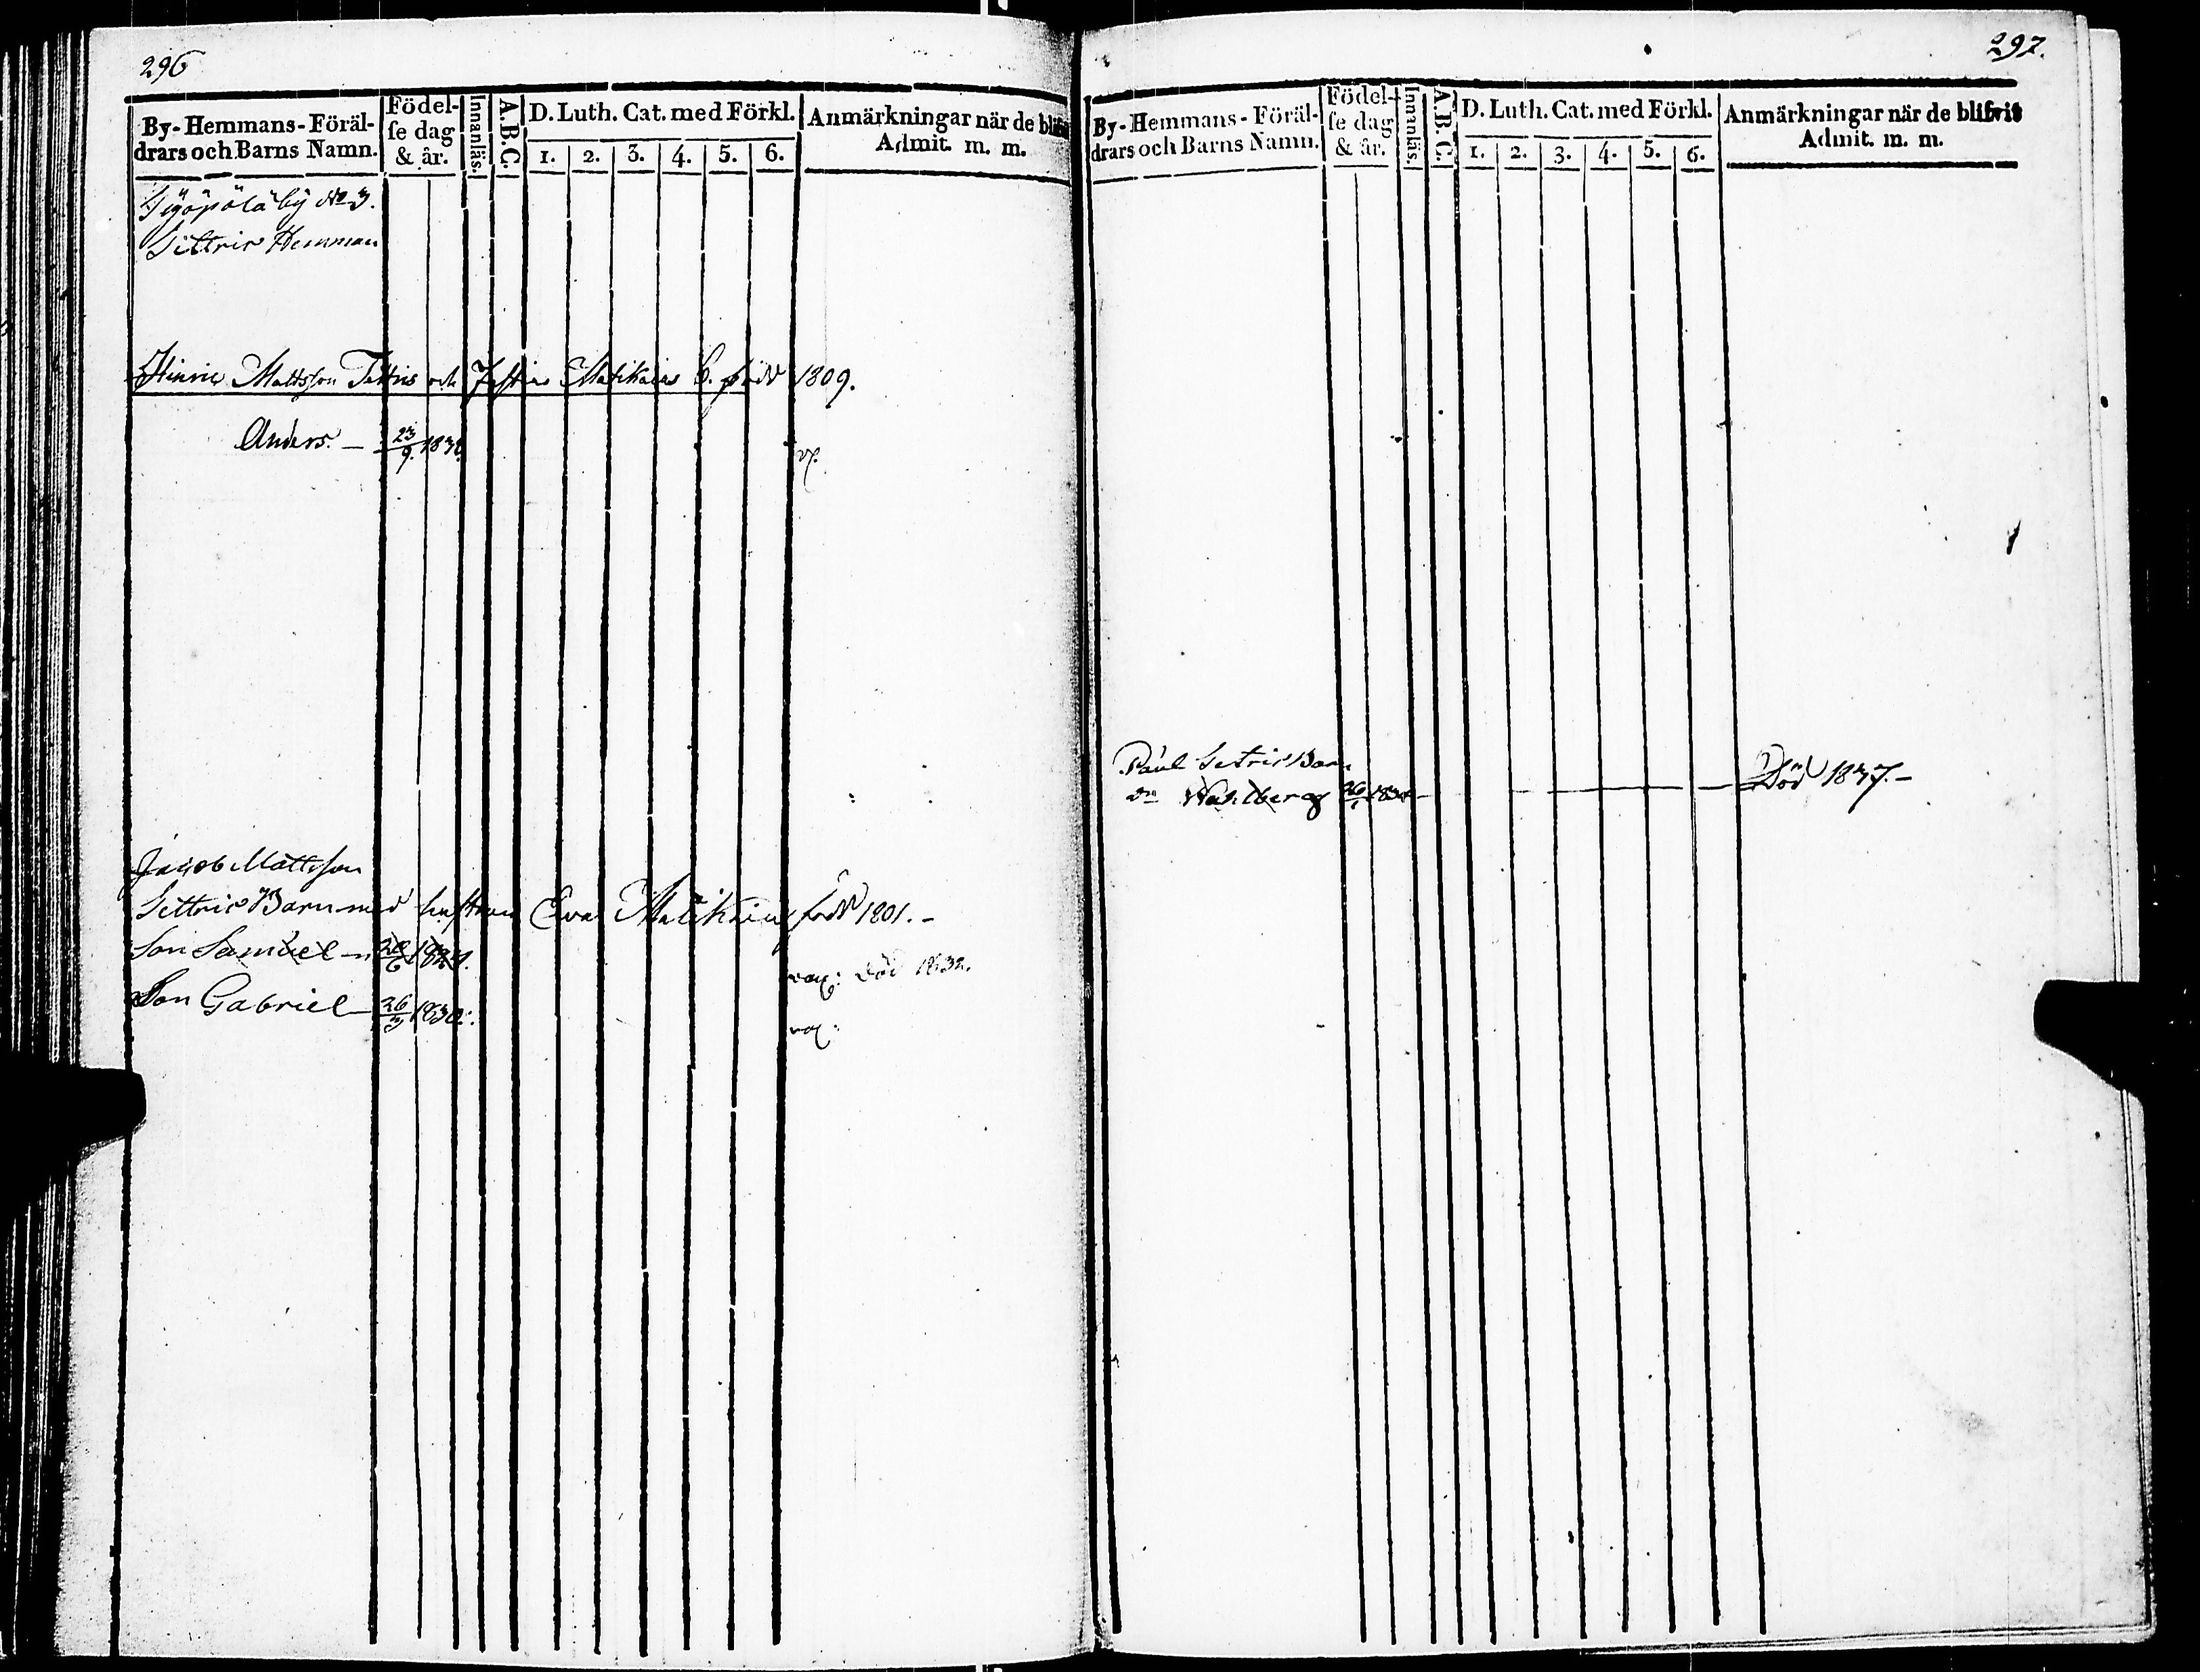 296
By-Hemmans-Föräl-
drars och Barns Namn.
Födel-
se dag
& år.
Innanläs.
A.B.C.
D. Luth. Cat. med Förkl.
1. 2. 3. 4. 5. 6.
Anmärkningar när de blifvi
Admit. m. m.
by No 3.
Hemman
Hinric Mattsson och Matikain född 1809.
Anders. — 23/9. 183
v.
Jacob Mattsson
Barn med hustrun Eva Matikain född 1801. -
Son Samuel 182
vac: död 1832.
Son Gabriel — 26/3 1830.
vac:
297.
By-Hemmans-Föräl-
drars och Barns Namn.
Födel-
se dag
& år.
Innanläs.
A.B.C.
D. Luth. Cat. med Förkl.
1. 2. 3. 4. 5. 6.
Anmärkningar när de blifvit
Admit. m. m.
Paul Barn
Wahlberg 26/1
Död 1837. -